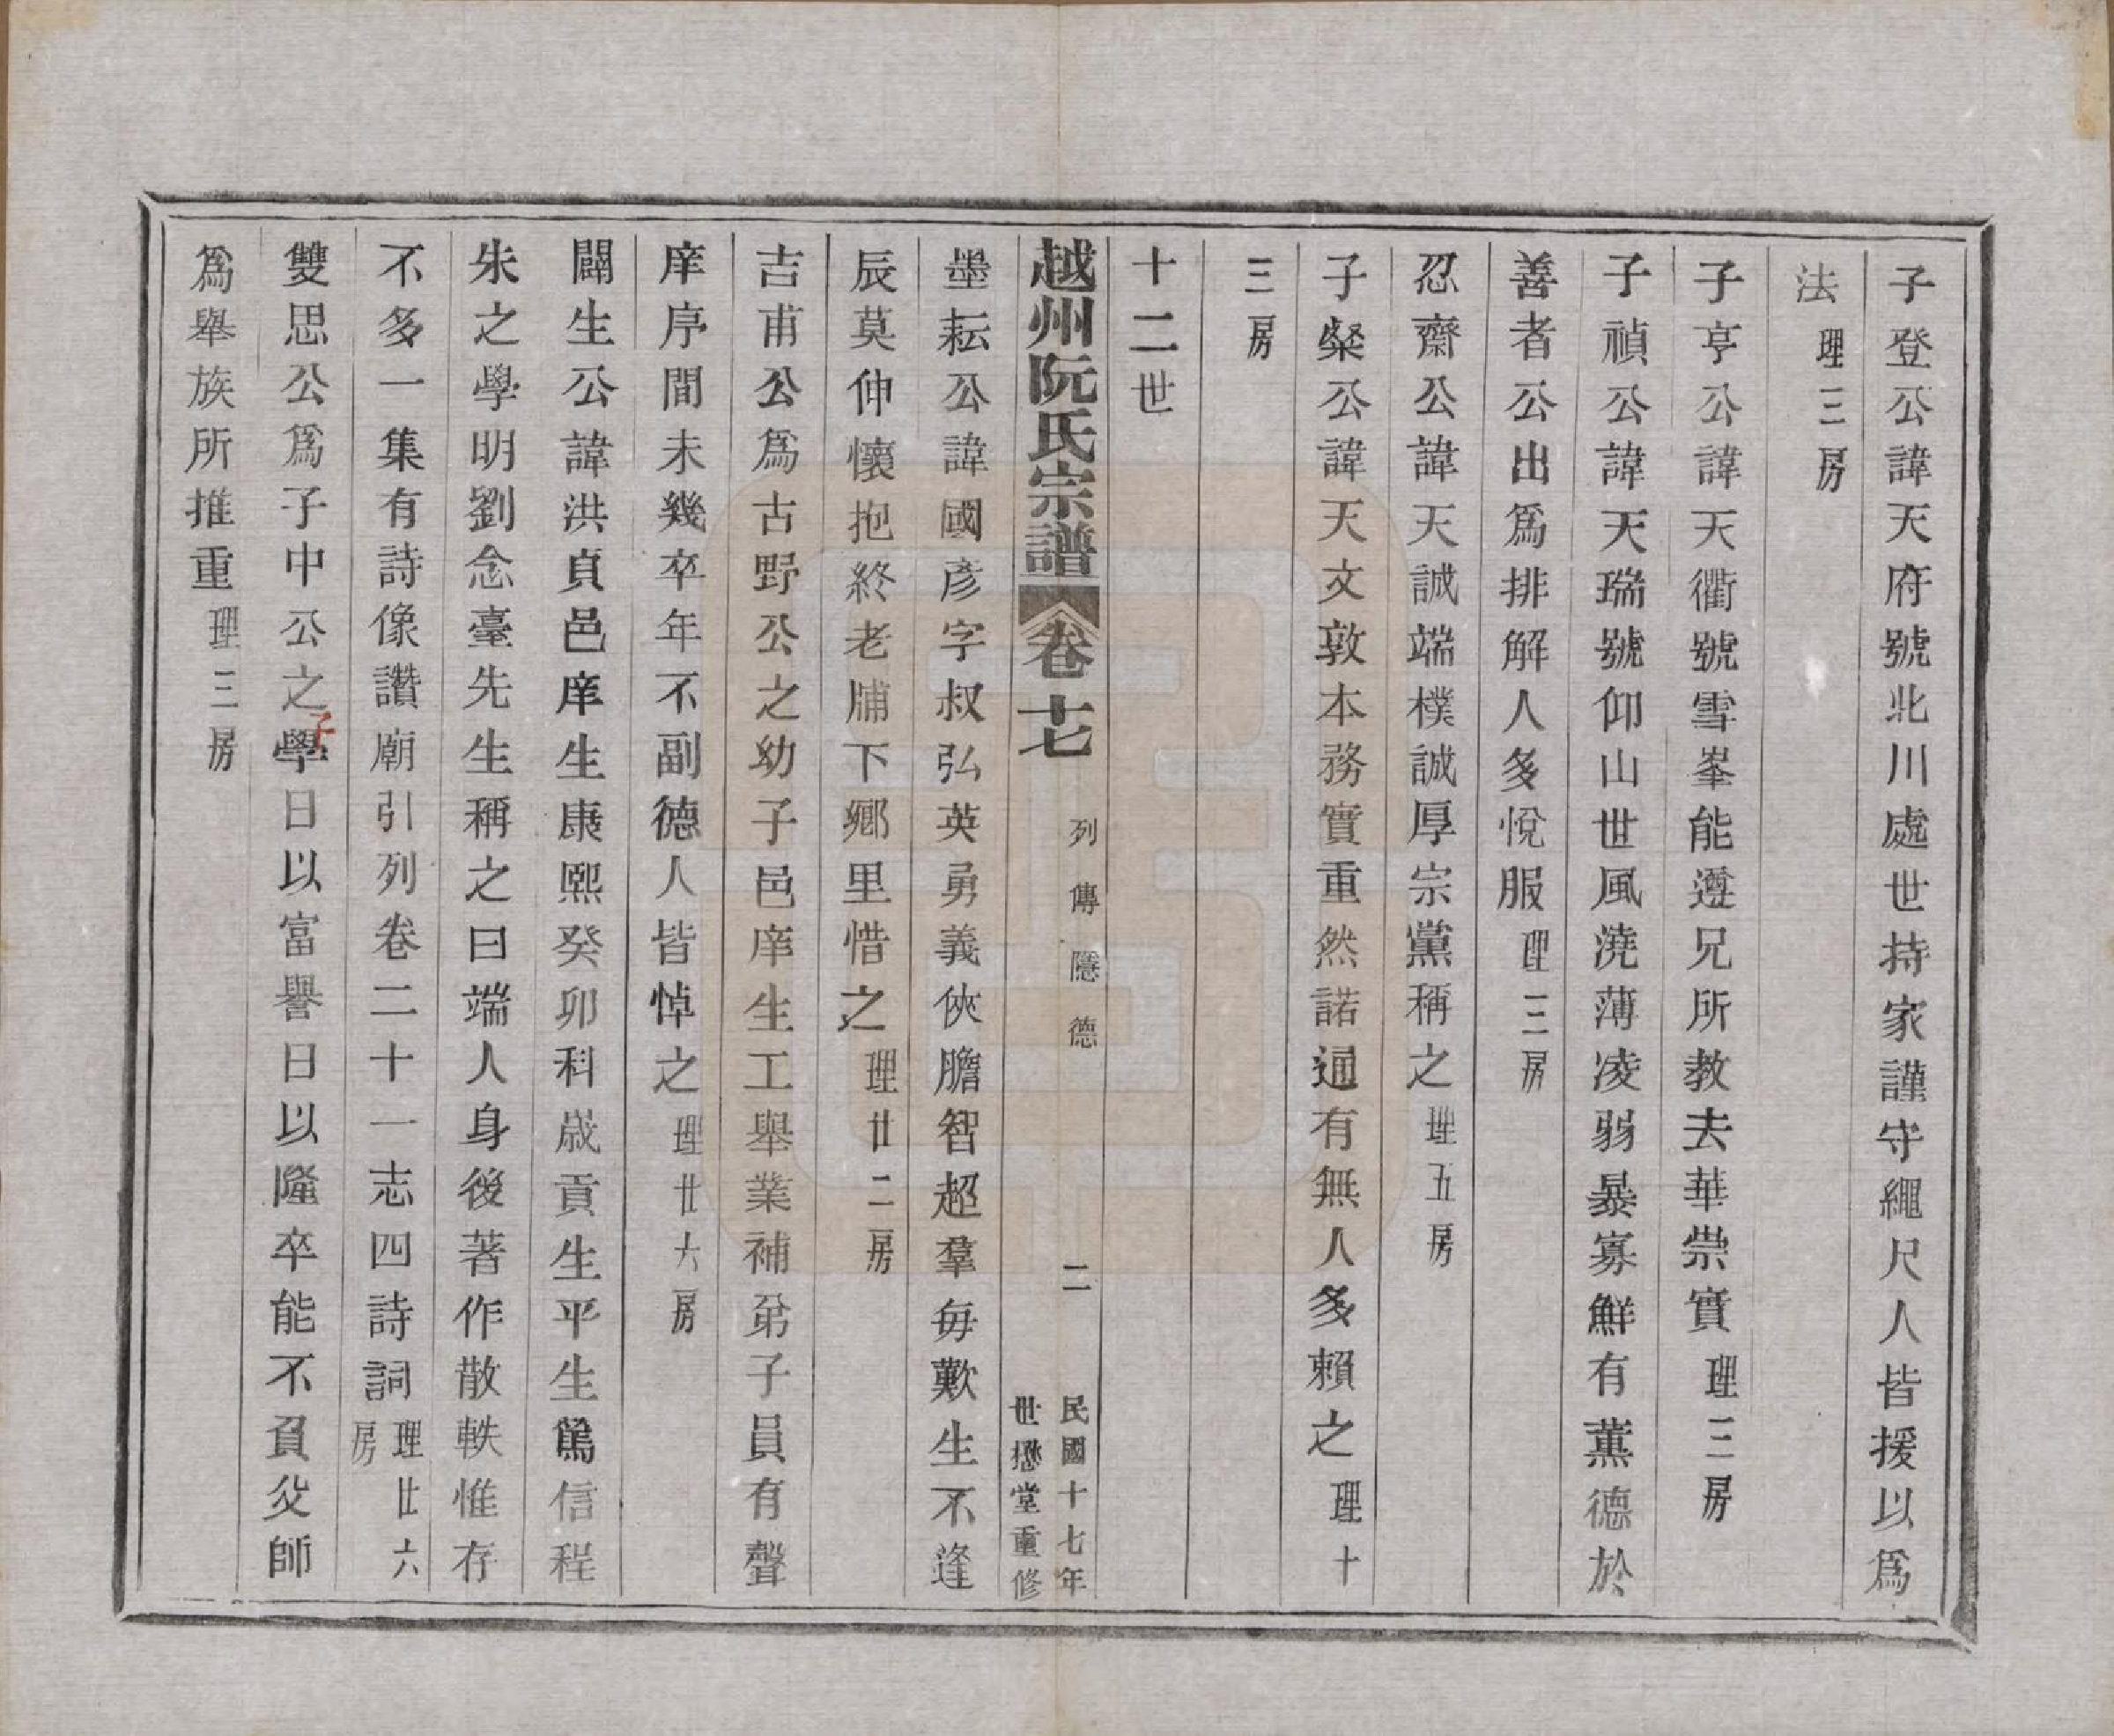 子登公諱天府號北川處世持家謹守繩尺人皆援以爲
法理三房
子亨公諱天衢號雪峯能遵兄所教去華崇實理三房
子禎公諱天瑞號仰山世風澆薄凌弱暴寡鮮有薰德於
善者公出爲排解人多悅服理三房
忍齋公諱天誠端樸誠厚宗黨稱之理五房
子粲公諱天文敦本務實重然諾通有無人多賴之理十
三房
十二世
越州阮氏宗譜 卷十七 列傳隱德 二 民國十七年
世懋堂重修
墨耘公諱國彦字叔弘英勇義俠膽智超羣每歎生不逢
辰莫伸懷抱終老牖下鄉里惜之理廿二房
吉甫公爲古野公之幼子邑庠生工舉業補弟子員有聲
庠序間未幾卒年不副德人皆悼之理廿六房
闢生公諱洪貞邑庠生康熙癸卯科歲貢生平生篤信程
朱之學明劉念臺先生稱之曰端人身後著作散軼惟存
不多一集有詩像讚廟引列卷二十一志四詩詞理廿六
房
雙思公爲子中公之子學日以富譽日以隆卒能不負父師
爲舉族所推重理三房